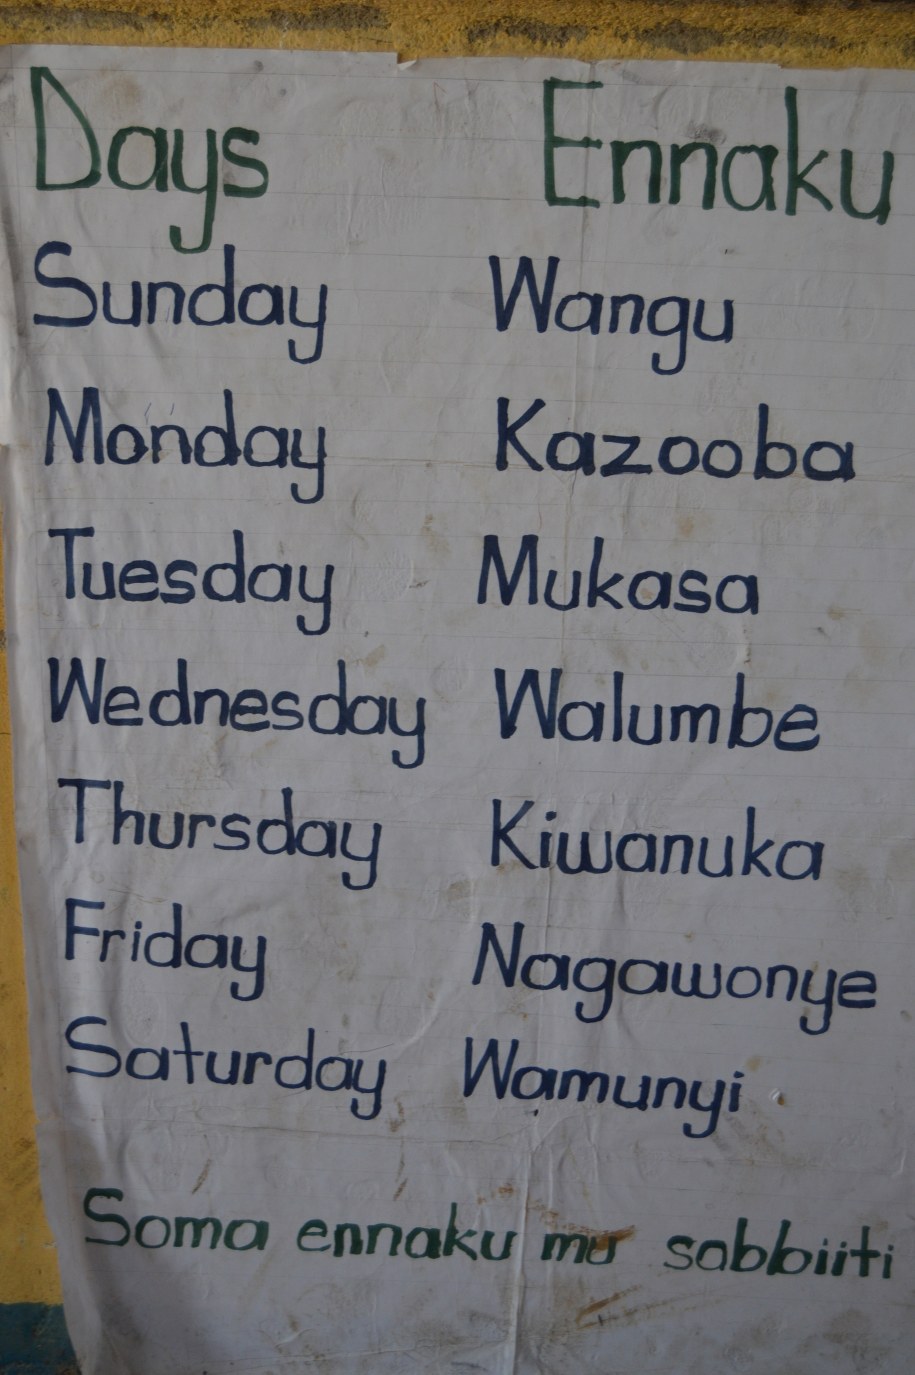 Days Ennaku
Sunday Wangu
Monday Kazooba
Tuesday Mukasa
Wednesday Walumbe
Thursday Kiwanuka
Friday Nagawonye
Saturday Wamunyi
Soma ennaku mu sabbiiti